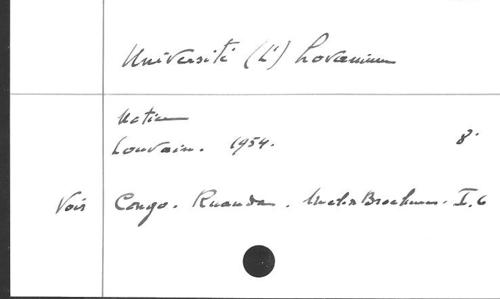 Université (L') Lovanium
Notice
Louvain. 1954. 8°
Voir Congo. Ruanda. Brochures. I.6